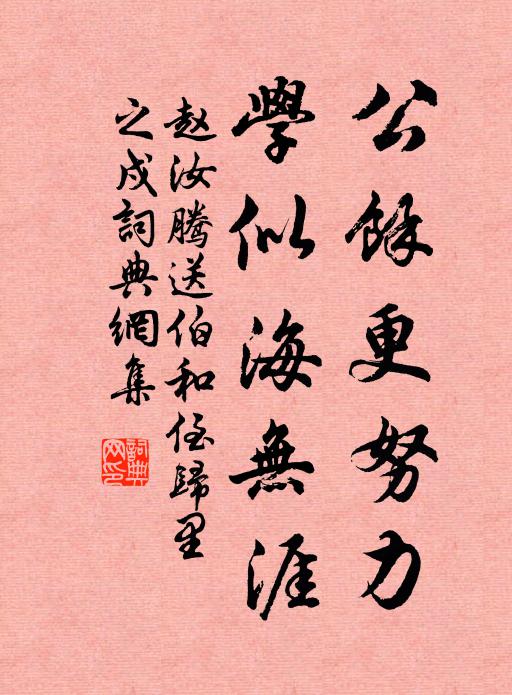 公餘更努力
學似海無涯
赵汝腾送伯和侄歸里
之戍詞典網集
詞典網印